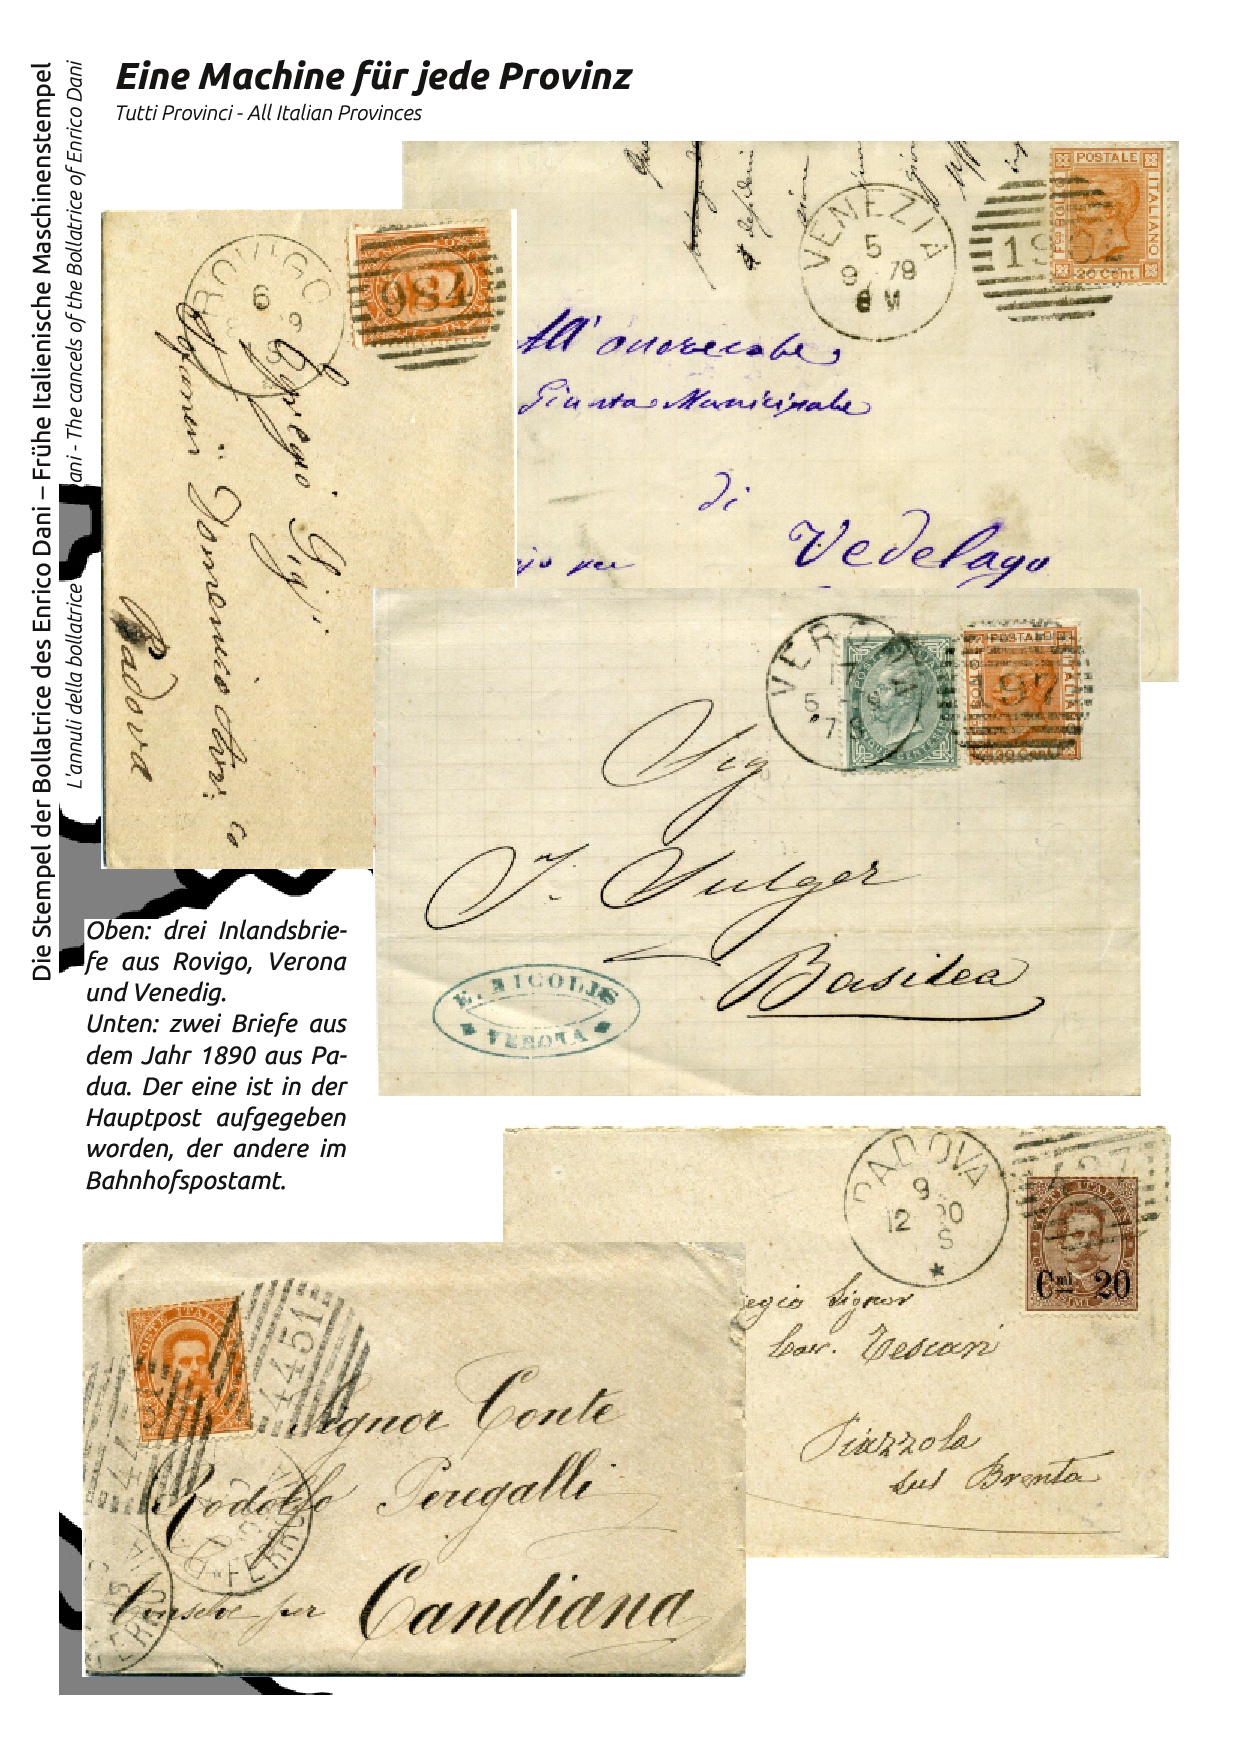 Eine Machine für jede Provinz
Tutti Provinci - All Italian Provinces
Die Stempel der Bollatrice des Enrico Dani – Frühe Italienische Maschinenstempel
L'annuli della bollatrice ani - The cancels of the Bollatrice of Enrico Dani
POSTALE
ITALIANO
Fco BOLLO
20 Cent
VENEZIA
5
9 78
8 M
All' onorevole
Giunta Municipale
di
Vedelago
ROVIGO
6
9
984
Egregio Sig
Domenico
Padova
VERONA
17
5
79
197
POSTALE
Sig
J. Sulger
Basilea
E. NICOLIS
VERONA
Oben: drei Inlandsbrie-
fe aus Rovigo, Verona
und Venedig.
Unten: zwei Briefe aus
dem Jahr 1890 aus Pa-
dua. Der eine ist in der
Hauptpost aufgegeben
worden, der andere im
Bahnhofspostamt.
PADOVA
9
12 90
S
POSTE ITALIANE
Cmi 20
egio Signor
Cav. Tescari
Piazzola
sul Brenta
4451
44
FERROV
Signor Conte
Rodolfo Peregalli
Conselve per Candiana